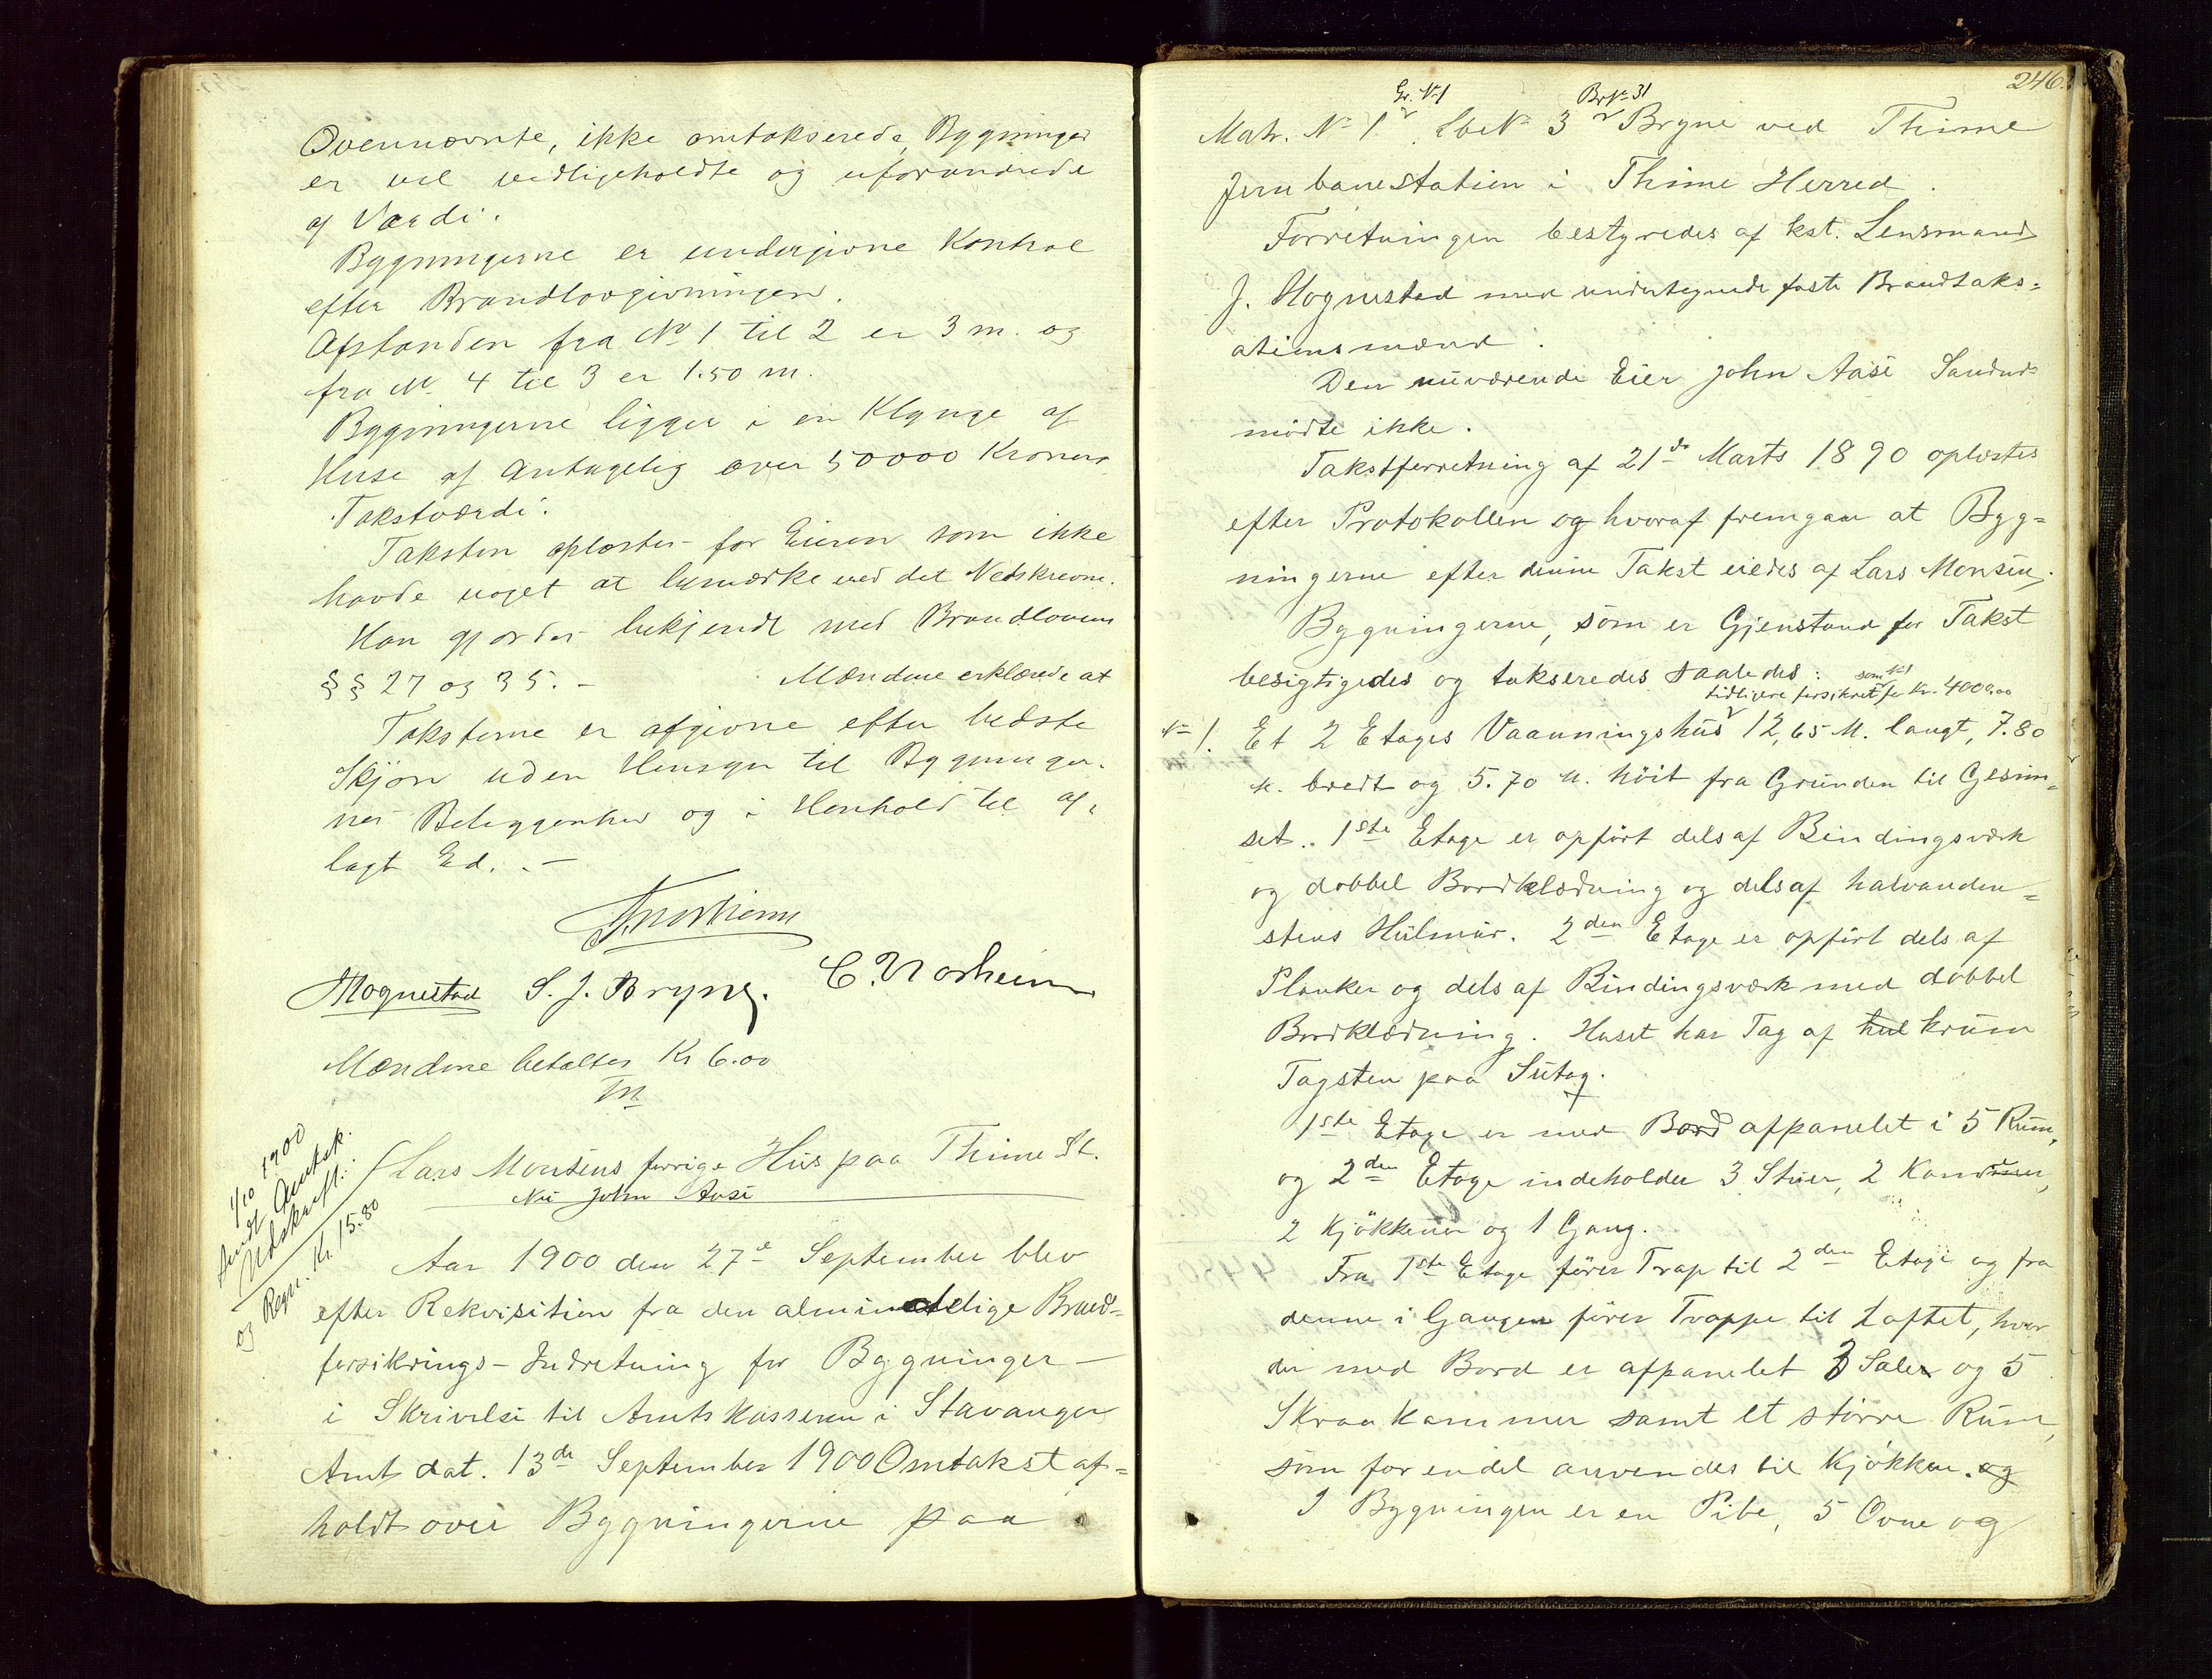 Ovennævnte, ikke omtakserede, Bygninger
er vel vedligeholdte og uforandrede
af Værdi.
Bygningerne er undergivne Kontrol
efter Brandlovgivningen.
Afstanden fra No 1 til 2 er 3 m. og
fra No 4 til 3 er 1.50 m.
Bygningerne ligger i en Klynge af
Huse af antagelig over 50000 Kroners
Takstværdi.
Taksten oplæstes for Eieren som ikke
havde noget at bemærke ved det Nedskrevne.
Han gjordes bekjendt med Brandlovens
§§ 27 og 35. - Mændene erklærede at
Taksterne er afgivne efter bedste
Skjøn uden Hensyn til Bygninger-
nes Beliggenhed og i Henhold til af-
lagt Ed. . -
Hognestad S. J. Bryne. C. Norheim
Mændene betaltes Kr 6.00
1/10 1900
sendt Amtsk.
Udskrift.
og Regn. Kr. 15.80
Lars Monsens forrige Hus paa Thime St.
Nu John Aase
Aar 1900 den 27de September blev
efter Rekvisition fra den almindelige Brand-
forsikrings-Indretning for Bygninger -
i Skrivelse til Amtskasseren i Stavanger
Amt dat. 13de September 1900 Omtakst af-
holdt over Bygningerne paa
246.
Gr. No 1 Br No 31
Matr. No 1. Lbe No 3 Bryne ved Thime
Jernbanestation i Thime Herred.
Forretningen bestyredes af kst. Lensmand
J. Hognestad med undertegnede faste Brandtaks-
ationsmænd.
Den nuværende Eier John Aase Sandnes
mødte ikke.
Takstforretning af 21de Marts 1890 oplæstes
efter Protokollen og hvoraf fremgaar at Byg-
ningerne efter denne Takst eiedes af Lars Monsen.
Bygningerne, som er Gjenstand for Takst
besigtigedes og takseredes saaledes:
som No 1
tidligere forsikret for Kr. 4000.00
No 1. Et 2 Etages Vaaningshus 12,65 M. langt, 7.80
M. bredt og 5.70 M. høit fra Grunden til Gesim-
set.. 1ste Etage er opført dels af Bindingsværk
og dobbel Bordklædning og dels af halvanden-
stens Hulmur. 2den Etage er opført dels af
Planker og dels af Bindingsværk med dobbel
Bordklædning. Huset har Tag af hul krum
Tagsten paa Sutag.
1ste Etage er med Bord afpanelet i 5 Rum,
og 2den Etage indeholder 3 Stuer, 2 Kammer,
2 Kjøkkener og 1 Gang.
Fra 1ste Etage fører Trap til 2den Etage og fra
denne i Gangen fører Trappe til Loftet, hvor
der med Bord er afpanelet 3 Saler og 5
Skraakammer samt et større Rum,
som for endel anvendes til Kjøkken. og
I Bygningen er en Pibe, 5 Ovne og